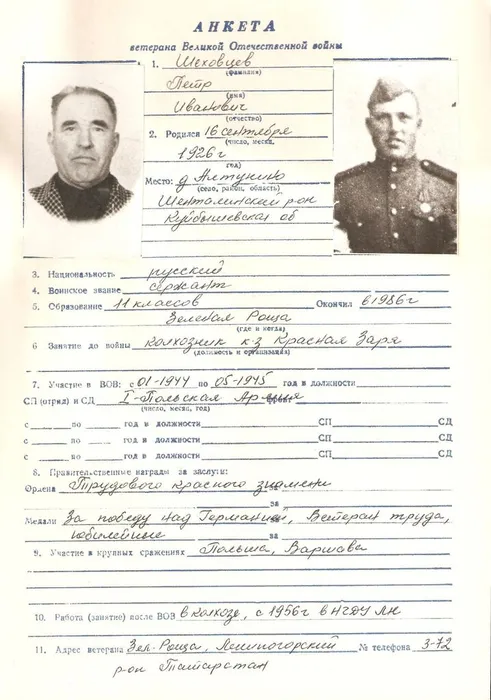 АНКЕТА
ветерана Великой Отечественной войны
1. Шеховцев
(фамилия)
Петр
(имя)
Иванович
(отчество)
2. Родился 16 сентября
(число, месяц,
1926 г
год)
Место: д Алтунино
(село, район, область)
Шенталинский рон
Куйбышевская об
3. Национальность русский
4. Воинское звание сержант
5. Образование 11 классов Окончил в 1986 г
Зеленая Роща
(где и когда)
6 Занятие до войны колхозник к-з Красная Заря
(должность и организация)
7. Участие в ВОВ: с 01-1944 по 05-1945 год в должности
СП (отряд) и СД I-Польская Армия
(число, месяц, год)
с по год в должности СП СД
с по год в должности СП СД
с по год в должности СП СД
8. Правительственные награды за заслуги:
Ордена Трудового красного знамени
за
Медали За победу над Германией, Ветеран труда,
юбилейные за
9. Участие в крупных сражениях Польша, Варшава
10. Работа (занятие) после ВОВ в колхозе, с 1956 г в НГДУ ЛН
11. Адрес ветерана Зел-Роща, Лениногорский № телефона 3-72
рон Татарстан